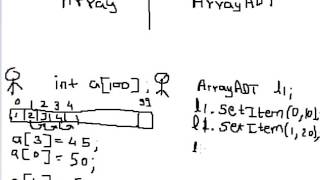 Array ArrayADT
int a[100]; ArrayADT l1;
0 1 2 3 4 99
1 2 3 4 l1.setItem(0,10);
a[3]=45; l1.setItem(1,20);
a[0]=50;